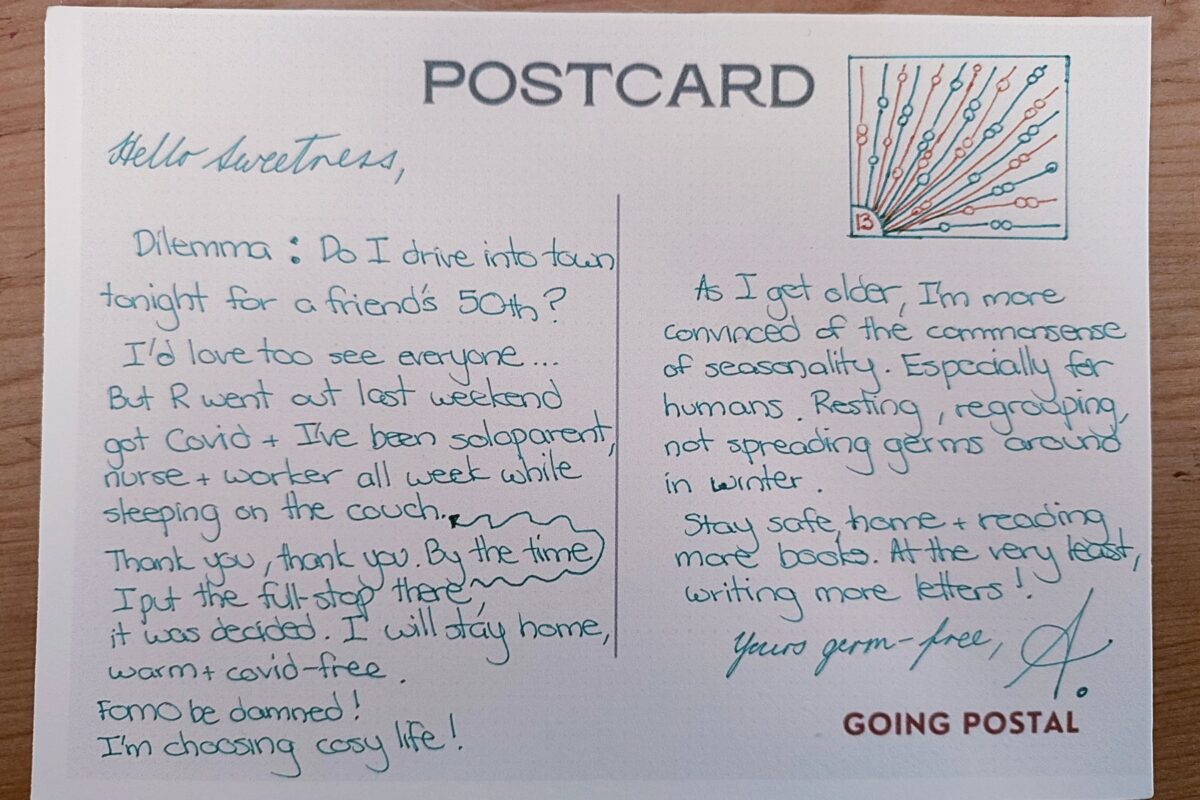 POSTCARD
13
Hello Sweetness,
Dilemma : Do I drive into town
tonight for a friend's 50th?
I'd love too see everyone...
But R went out last weekend
got Covid + I've been soloparent,
nurse + worker all week while
sleeping on the couch.
Thank you, thank you. By the time
I put the full-stop there,
it was decided. I will stay home,
warm + covid-free.
Fomo be damned!
I'm choosing cosy life!
As I get older, I'm more
convinced of the commonsense
of seasonality. Especially for
humans. Resting, regrouping,
not spreading germs around
in winter.
Stay safe, home + reading
more books. At the very least,
writing more letters!
Yours germ-free, A.
GOING POSTAL